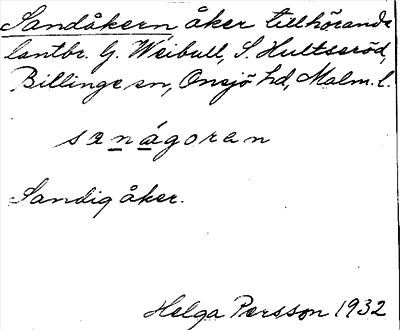 Sandåkern åker tillhörande
lantbr. G. Weibull, S. Hultseröd,
Billinge sn, Onsjö hd, Malm. l.
sanágoran
Sandig åker.
Helga Persson 1932